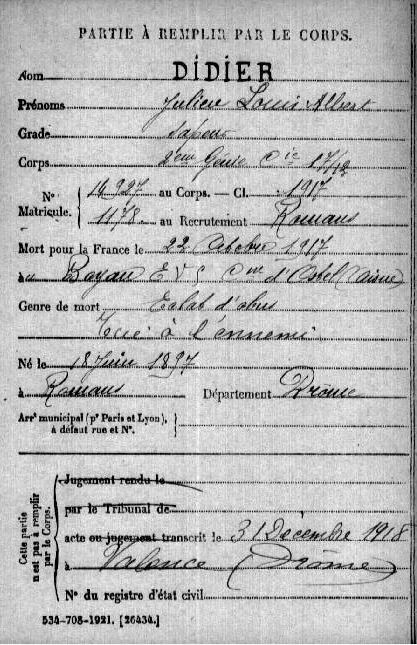 PARTIE À REMPLIR PAR LE CORPS.
Nom DIDIER
Prénoms Julien Louis Albert
Grade Sapeur
Corps 2eme Génie Cie 17/12
N° Matricule. { 14927 au Corps. — Cl. 1917
1178 au Recrutement Romans
Mort pour la France le 22 Octobre 1917
à d'Ostel (Aisne)
Genre de mort Eclat d'obus
Tué à l'ennemi
Né le 18 Juin 1897
à Romans Département Drôme
Arrt municipal (pr Paris et Lyon), à défaut rue et N°. }
Cette partie n'est pas à remplir par le Corps. {
Jugement rendu le
par le Tribunal de
acte ou jugement transcrit le 31 Décembre 1918
à Valence (Drôme)
N° du registre d'état civil
534-708-1921. [26434.]